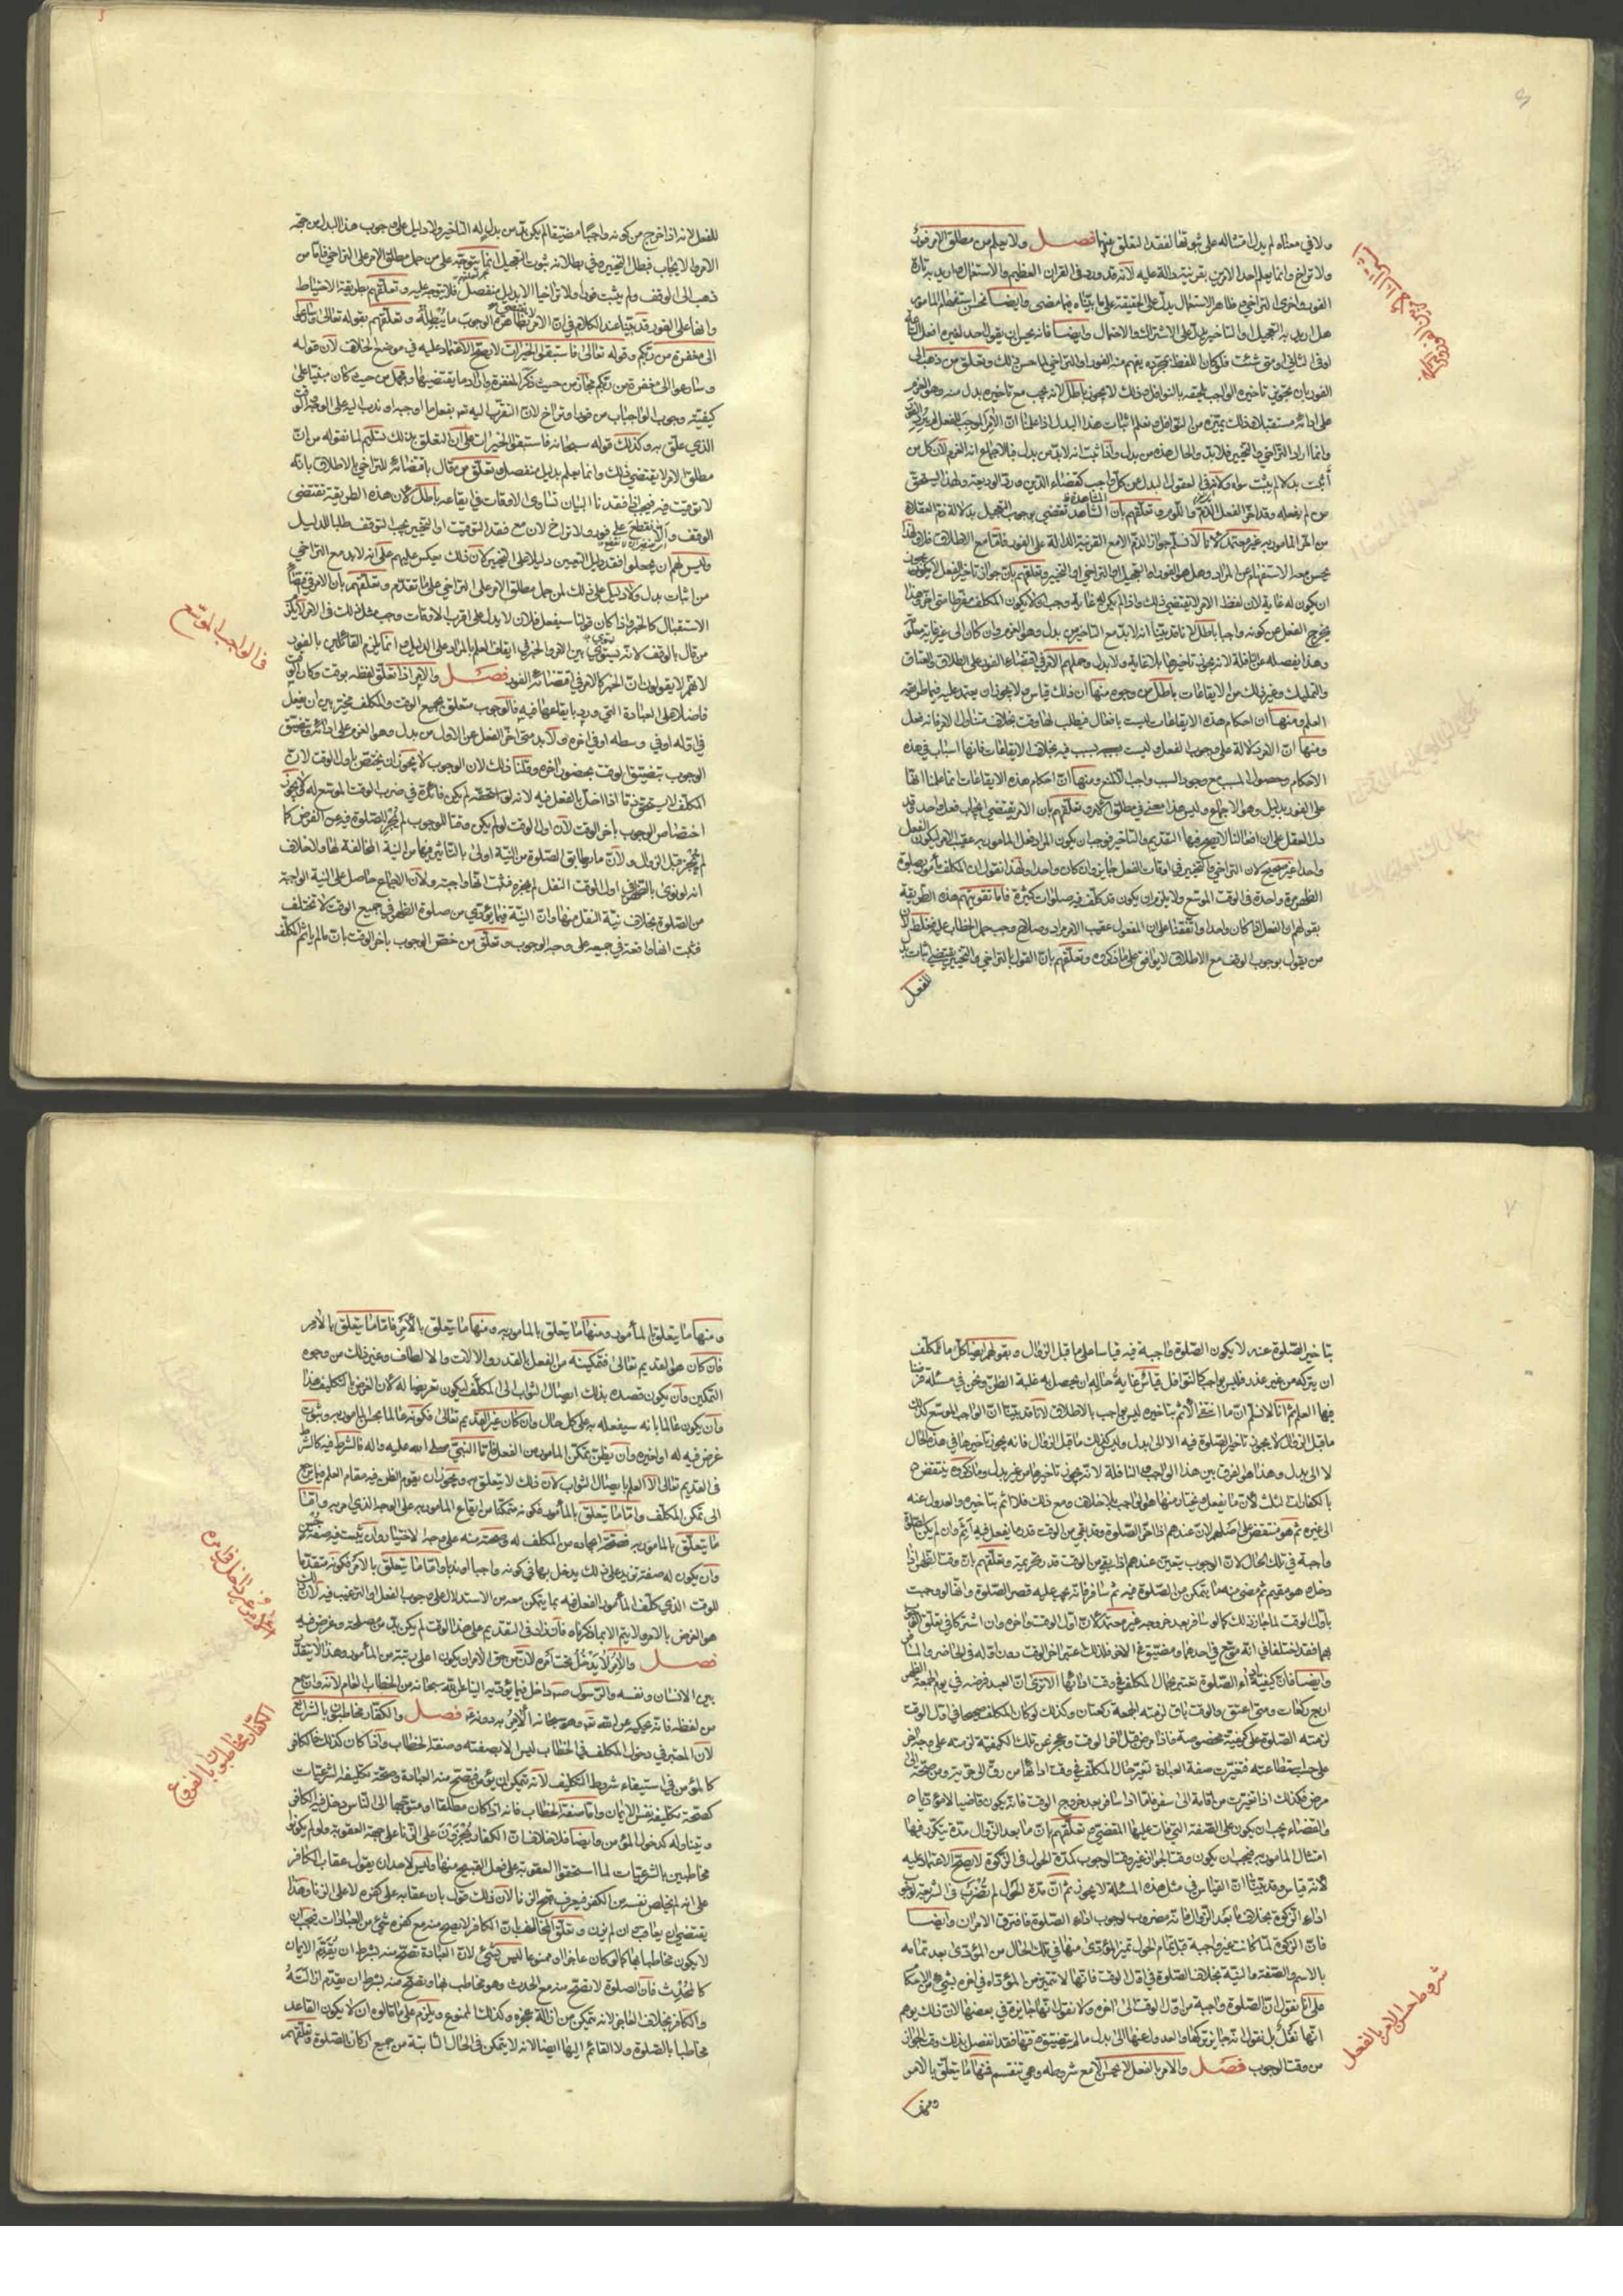 ولا في معناه لم يدل امتثاله على ثبوتها لفقد التعلق بينهما فصل ولا يعلم من مطلق الامر فور
ولا تراخ وانما يعلم احد الامرين بقرينة دالة عليه لانه قد ورد في القران العظيم والاستعمال واريد به تارة
الفور واخرى التراخي وظاهر الاستعمال يدل على الحقيقة على ما بيناه فيما مضى وايضا يحسن استفهام المامور
هل اريد به التعجيل والتاخير يدل على الاشتراك والاحتمال وايضا فانه يحسن ان يقول احد لغيره افعل الساعة
او في الثاني او متى شئت فلو كان اللفظ بمجرده يفهم منه الفور او التراخي لما حسن ذلك وتعلق من ذهب الى
الفور بان تجويز تاخيره الواجب يلحقه بالنوافل وذلك لا يجوز باطل لانه يجب مع تاخيره بدل منه وهو العزم
على ادائه مستقبلا وذلك يميزه من النوافل
من اخر المامور به غير معتمد لانا لا نسلم جواز الذم الا مع القرينة الدالة على الفور فاما مع الاطلاق فلا
ان يكون له غاية لان لفظ الامر لا يقتضي ذلك واذا لم يكن له غاية وجب ان لا يكون المكلف مفرطا متى اخره وهذا
يخرج الفعل من كونه واجبا باطل لانا قد بينا انه لا بد مع التاخير من بدل وهو العزم وان كان الى غير غاية معلومة
والتمليك وغير ذلك من الايقاعات باطل من وجوه منها ان ذلك قياس ولا يجوز ان يعتمد عليه فيما طريقه
العلم ومنها ان احكام هذه الايقاعات ليست بافعال فيطلب لها وقت بخلاف متناول الامر فانه فعل
ومنها ان الامر دلالة على وجوب الفعل وليست بسبب فيه بخلاف الايقاعات فانها اسباب في هذه
الاحكام وحصول المسبب مع وجود السبب واجب لازم ومنها ان احكام هذه الايقاعات انما علمنا انها
على الفور بدليل وهو الاجماع وليس هذا معنى في مطلق الامر وتعلقهم بان الامر يقتضي ايجاب فعل واحد وقد
واحدا غير صحيح لان التراخي والتخيير في اوقات الفعل جايز وان كان واحدا ولهذا نقول ان المكلف مامور بصلوة
الظهر مرة واحدة في الوقت الموسع ولا يلزم ان يكون قد كلف فيه صلوات كثيرة فاما تقويتهم هذه الطريقة
بقولهم ان الفعل اذا كان واحدا واتفقنا على ان المفعول عقيب الامر مراد وصلاح وجب حمل الخطاب عليه فغلط لان
من يقول بوجوب الوقف مع الاطلاق لا يوافق على ما ذكروه وتعلقهم بان القول بالتراخي والتخيير يقتضي اثبات بدل
للفعل
للفعل لانه اذا خرج من كونه واجبا مضيقا لم يكن بد من بدل له التاخير ولا دليل على وجوب هذا البدل من جهة
الامر والا يجاب فبطل التخيير وفي بطلانه ثبوت التعجيل انما يتوجه على من حمل مطلق الامر على التراخي فاما من
ذهب الى الوقف ولم يثبت فورا ولا تراخيا الا بدليل منفصل فلا يتوجه عليه وتعلقهم بطريقة الاحتياط
الى مغفرة من ربكم وقوله تعالى فاستبقوا الخيرات لا يصح الاعتماد عليه في موضع الخلاف لان قوله
وسارعوا الى مغفرة من ربكم مجاز من حيث ذكر المغفرة واراد ما يقتضيها ومجمل من حيث كان مبنيا على
كيفية وجوب الواجبات من فور وتراخ لان التقرب اليه تع بفعل ما اوجبه او ندب اليه على الوجه
الذي علق به وكذلك قوله سبحانه فاستبقوا الخيرات على ان التعلق بذلك تسليم لما نقوله من ان
مطلق الامر لا يقتضي ذلك وانما يعلم بدليل منفصل وتعلق من قال باقتضائه للتراخي بالاطلاق بانه
لا توقيت فيه فيجب اذا فقدنا البيان تساوى الاوقات في ايقاعه باطل لان هذه الطريقة تقتضي
الوقف والا نقطع على فور ولا تراخ لان مع فقد التوقيت او التخيير يجب التوقف طلبا للدليل
وليس لهم ان يجعلوا فقد دليل التعيين دليلا على التخيير لان ذلك ينعكس عليهم على انه لا بد مع التراخي
من اثبات بدل ولا دليل على ذلك لمن حمل مطلق الامر على التراخي على ما تقدم وتعلقهم بان الامر في اقتضاء
الاستقبال كالخبر واذا كان قولنا سيفعل فلان لا يدل على اقرب الاوقات وجب مثل ذلك في الامر
من قال بالوقف لانه يسوى بين الامر والخبر في ايقاف العلم بالمراد على الدليل وانما يلزم القائلين بالفور
لانهم لا يقولون ان الخبر كالامر في اقتضائه الفور فصل والامر اذا تعلق لفظه بوقت وكان الوقت
فاضلا على العبادة التي ورد بايقاعها فيه فالوجوب متعلق بجميع الوقت والمكلف مخير بين ان يفعل
في اوله او في وسطه او في اخره ولا بد متى اخر الفعل عن الاول من بدل وهو العزم على ادائه ويتضيق
الوجوب بتضيق الوقت بحضور اخره وقلنا ذلك لان الوجوب لا يجوز ان يختص باول الوقت لان
اختصاص الوجوب باخر الوقت لان اول الوقت لو لم يكن وقتا للوجوب لم تجز الصلوة فيه عن الفرض كما
لم تجز قبل الزوال ولان ما يطابق الصلوة من النية اولى بالتاثير فيها من النية المخالفة لها ولا خلاف
انه لو نوى بالظهر في اول الوقت النفل لم يجزه فثبت انها واجبة ولان الاجماع حاصل على النية الواجبة
من الصلوة بخلاف نية النفل منها وان النية فيما يؤدى من صلوة الظهر في جميع الوقت لا تختلف
فثبت انها واقعة في جميعه على وجه الوجوب وتعلق من خص الوجوب باخر الوقت بان ما لم ياثم المكلف
في الواجب الموسع
بتاخير الصلوة عنه لا يكون الصلوة واجبة فيه قياسا على ما قبل الزوال وبقولهم ايضا كل ما للمكلف
ان يتركه من غير عذر فليس بواجب كالنوافل قياس غاية حاله ان يحصل به غلبة الظن ونحن في مسئلة فرضنا
فيها العلم ثم انا لا نسلم ان ما انتفى الاثم بتاخيره ليس بواجب بالاطلاق لانا قد بينا ان الواجب الموسع كذلك
ما قبل الزوال لا يجوز تاخير الصلوة فيه الا الى بدل وليس كذلك ما قبل الزوال فانه يجوز تاخيرها في هذه الحال
لا الى بدل وهذا هو الفرق بين هذا الواجب والنافلة لانه يجوز تاخيرها من غير بدل وما ذكروه ينتقض
بالكفارات الثلث لان ما يفعله ويختار منها هو الواجب بلا خلاف ومع ذلك فلا اثم بتاخيره والعدول عنه
الى غيره ثم هو منتقض على اصلهم لان عندهم اذا اخر الصلوة وقد بقي من الوقت قدر ما يفعل فيه اثم وان لم يكن الصلوة
واجبة في تلك الحال لان الوجوب يتعين عندهم اذا بقي من الوقت قدر تحريمة وتعلقهم بان وقت الظهر اذا
دخل وهو مقيم ثم مضى منه ما يتمكن من الصلوة فيه ثم سافر فانه يجب عليه قصر الصلوة وانها لو وجبت
باول الوقت لما جاز ذلك كما لو سافر بعد خروجه غير معتمد لان اول الوقت واخره وان اشتركا في تعلق الوجوب
بهما فقد اختلفا في انه موسع في احدهما ومضيق في الاخر فلذلك اعتبر اخر الوقت دون اوله في الحاضر والمسافر
وايضا فان كيفية اداء الصلوة تعتبر بحال المكلف في وقت ادائها الا ترى ان العبد فرضه في يوم الجمعة الظهر
اربع ركعات ومتى اعتق والوقت باق لزمته الجمعة ركعتان وكذلك لو كان المكلف صحيحا في اول الوقت
لزمته الصلوة على كيفية مخصوصة فاذا مرض قبل اخر الوقت وعجز عن تلك الكيفية لزمته على وجه اخر
على حسب استطاعته فتغيرت صفة العبادة لتغير حال المكلف في وقت ادائها من رق الى حرية ومن صحة الى
مرض فكذلك اذا تغيرت من اقامة الى سفر فاما اذا سافر بعد خروج الوقت فانه يكون قاضيا لا مؤديا
والقضاء يجب ان يكون على الصفة التي مات عليها المقضى وتعلقهم بان ما بعد الزوال مدة يتكرر فيها
امتثال المامور به فيجب ان يكون وقت الجواز غير وقت الوجوب كمدة الحول في الزكوة لا يصح الاعتماد عليه
لانه قياس وقد بينا ان القياس في مثل هذه المسئلة لا يجوز ثم ان مدة الحول لم تضرب في الشريعة لوجوب
اداء الزكوة بخلاف ما بعد الزوال فانه مضروب لوجوب اداء الصلوة فافترق الامران وايضا
فان الزكوة لما كانت غير واجبة قبل تمام الحول تميز المؤدى منها في تلك الحال من المؤدى بعد تمامه
بالاسم والصفة والنية بخلاف الصلوة في اول الوقت فانها لا تتميز من المؤداة في اخره بشيء من الاحكام
على انا نقول ان الصلوة واجبة من اول الوقت الى اخره ولا نقول انها جايزة في بعضها لان ذلك يوهم
انها نفل بل نقول انه جايز تركها والعدول عنها الى بدل ما لم يتضيق وقتها فقد انفصل بذلك وقت الجواز
من وقت الوجوب فصل والامر بالفعل لا يحسن الا مع شروطه وهي تنقسم فمنها ما يتعلق بالامر
ومنها
شروط حسن الامر بالفعل
ومنها ما يتعلق بالمأمور ومنها ما يتعلق بالمامور به ومنها ما يتعلق بالامر فاما ما يتعلق بالامر
فان كان هو القديم تعالى فتمكينه من الفعل بالقدر والالات والالطاف وغير ذلك من وجوه
التمكين وان يكون قصده بذلك ايصال الثواب الى المكلف ليكون تعريضا له لان الغرض بالتكليف هذا
وان يكون عالما بانه سيفعله به على كل حال وان كان غير القديم تعالى فكونه عالما بحسن المامور به وثبوت
غرض فيه له او لغيره وان يظن تمكن المامور من الفعل فاما النبي صلى الله عليه واله فالشرط فيه كالشرط
في القديم تعالى الا العلم بايصال الثواب لان ذلك لا يتعلق به ويجوز ان يقوم الظن فيه مقام العلم فيما يرجع
الى تمكن المكلف واما ما يتعلق بالمأمور فكونه متمكنا من ايقاع المامور به على الوجه الذي امر به واما
ما يتعلق بالمامور به فصحة ايجاده من المكلف له وصحته منه على وجه الاختيار وان يثبت فيه صفة الحسن
وان يكون له صفة تزيد على ذلك يدخل بها في كونه واجبا او ندبا واما ما يتعلق بالامر فكونه متقدما
للوقت الذي كلف المأمور الفعل فيه بما يتمكن معه من الاستدلال على وجوب الفعل او الترغيب فيه لان
هو الغرض بالامر ولا يتم الا بما ذكرناه فان زاد في التقديم على هذا الوقت لم يكن بد من مصلحة وغرض فيه
فصل والامر لا يدخل تحت امره لان من حق الامر ان يكون اعلى رتبة من المأمور وهذا لا يتقدر
بين الانسان ونفسه والرسول ص داخل فيما يؤديه الينا عن الله سبحانه من الخطاب العام لانه وان سمع
من لفظه فانه يحكيه عن الله تع وهو سبحانه الامر به دونه ع فصل والكفار مخاطبون بالشرائع
لان المعتبر في دخول المكلف في الخطاب ليس الا بصفته وصفة الخطاب واذا كان كذلك فالكافر
كالمؤمن في استيفاء شروط التكليف لانه يتمكن ان يؤمن فتصح منه العبادة وصحة تكليفه الشرعيات
كصحة تكليفه نفس الايمان واما صفة الخطاب فانه اذا كان مطلقا او متوجها الى الناس دخل فيه الكافر
ويتناوله كدخول المؤمن وايضا فلا خلاف ان الكفار يحدون على الزنا على جهة العقوبة ولو لم يكونوا
مخاطبين بالشرعيات لما استحقوا العقوبة على فعل القبيح منها وليس لاحد ان يقول عقاب الكافر
على انه لم يخلص نفسه من الكفر فيعرف قبح الزنا لان ذلك قول بان عقابه على كفره لا على الزنا وهذا
يقتضي ان يعاقب وان لم يزن وتعلق المخالف بان الكافر لا يصح منه مع كفره شيء من العبادات فيجب ان
لا يكون مخاطبا بها كما لو كان عاجزا او ممنوعا ليس بشيء لان العبادة تصح منه بشرط ان يقدم الايمان
كالمحدث فان الصلوة لا تصح منه مع الحدث وهو مخاطب بها وتصح منه بشرط ان يقدم ازالته
والكافر بخلاف العاجز لانه يتمكن من ازالة كفره وكذلك الممنوع ويلزم على ما قالوه ان لا يكون القاعد
مخاطبا بالصلوة ولا القائم اليها ايضا لانه لا يتمكن في الحال الثانية من جميع اركان الصلوة وتعلقهم
الكفار مخاطبون بالفروع